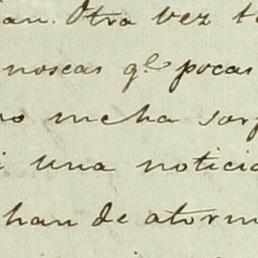 an. Otra vez t
noscas q.e pocas
o mcha sor
i una noticia
han de atorm